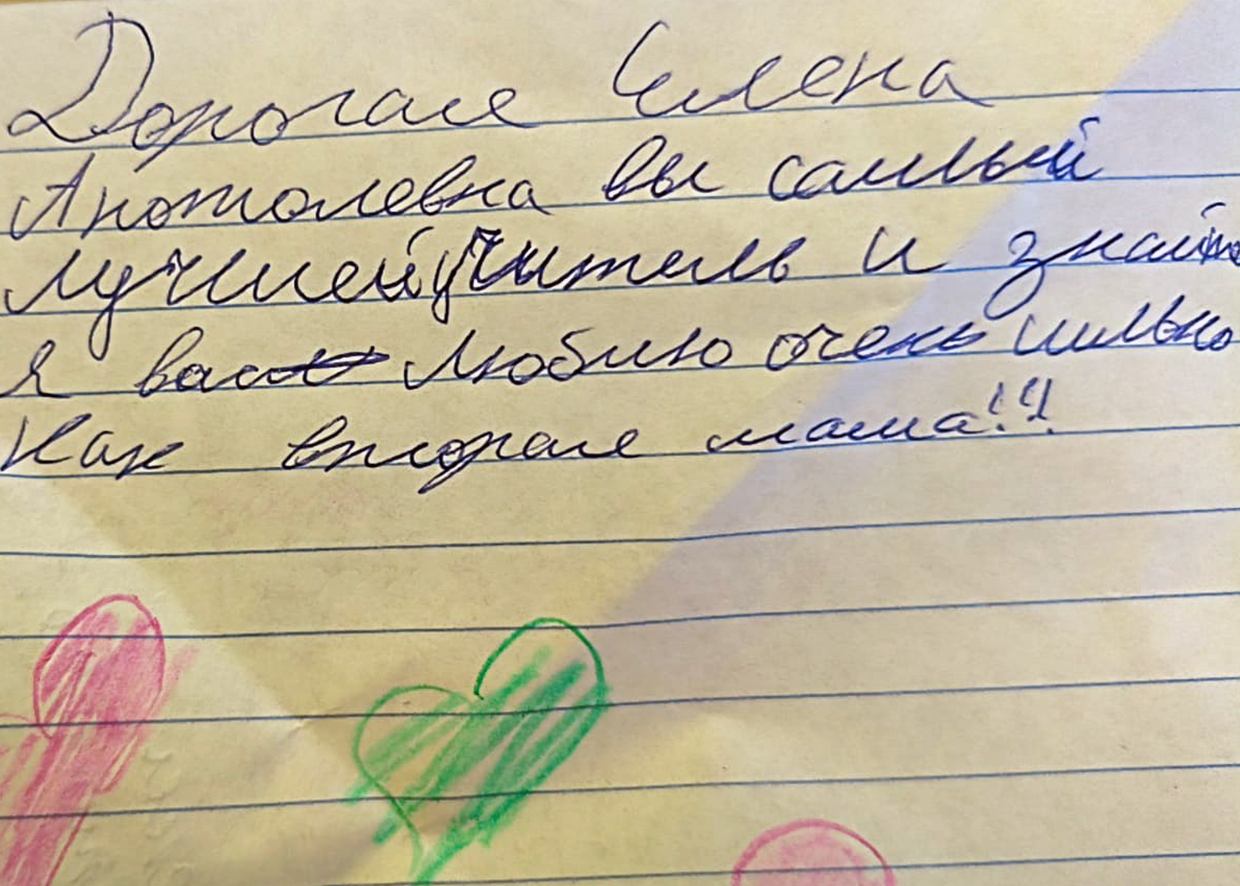 Дорогая Елена
Анатолевна вы самый
лучшей учитель и знайте
я вас люблю очень сильно
Как вторая мама!!!